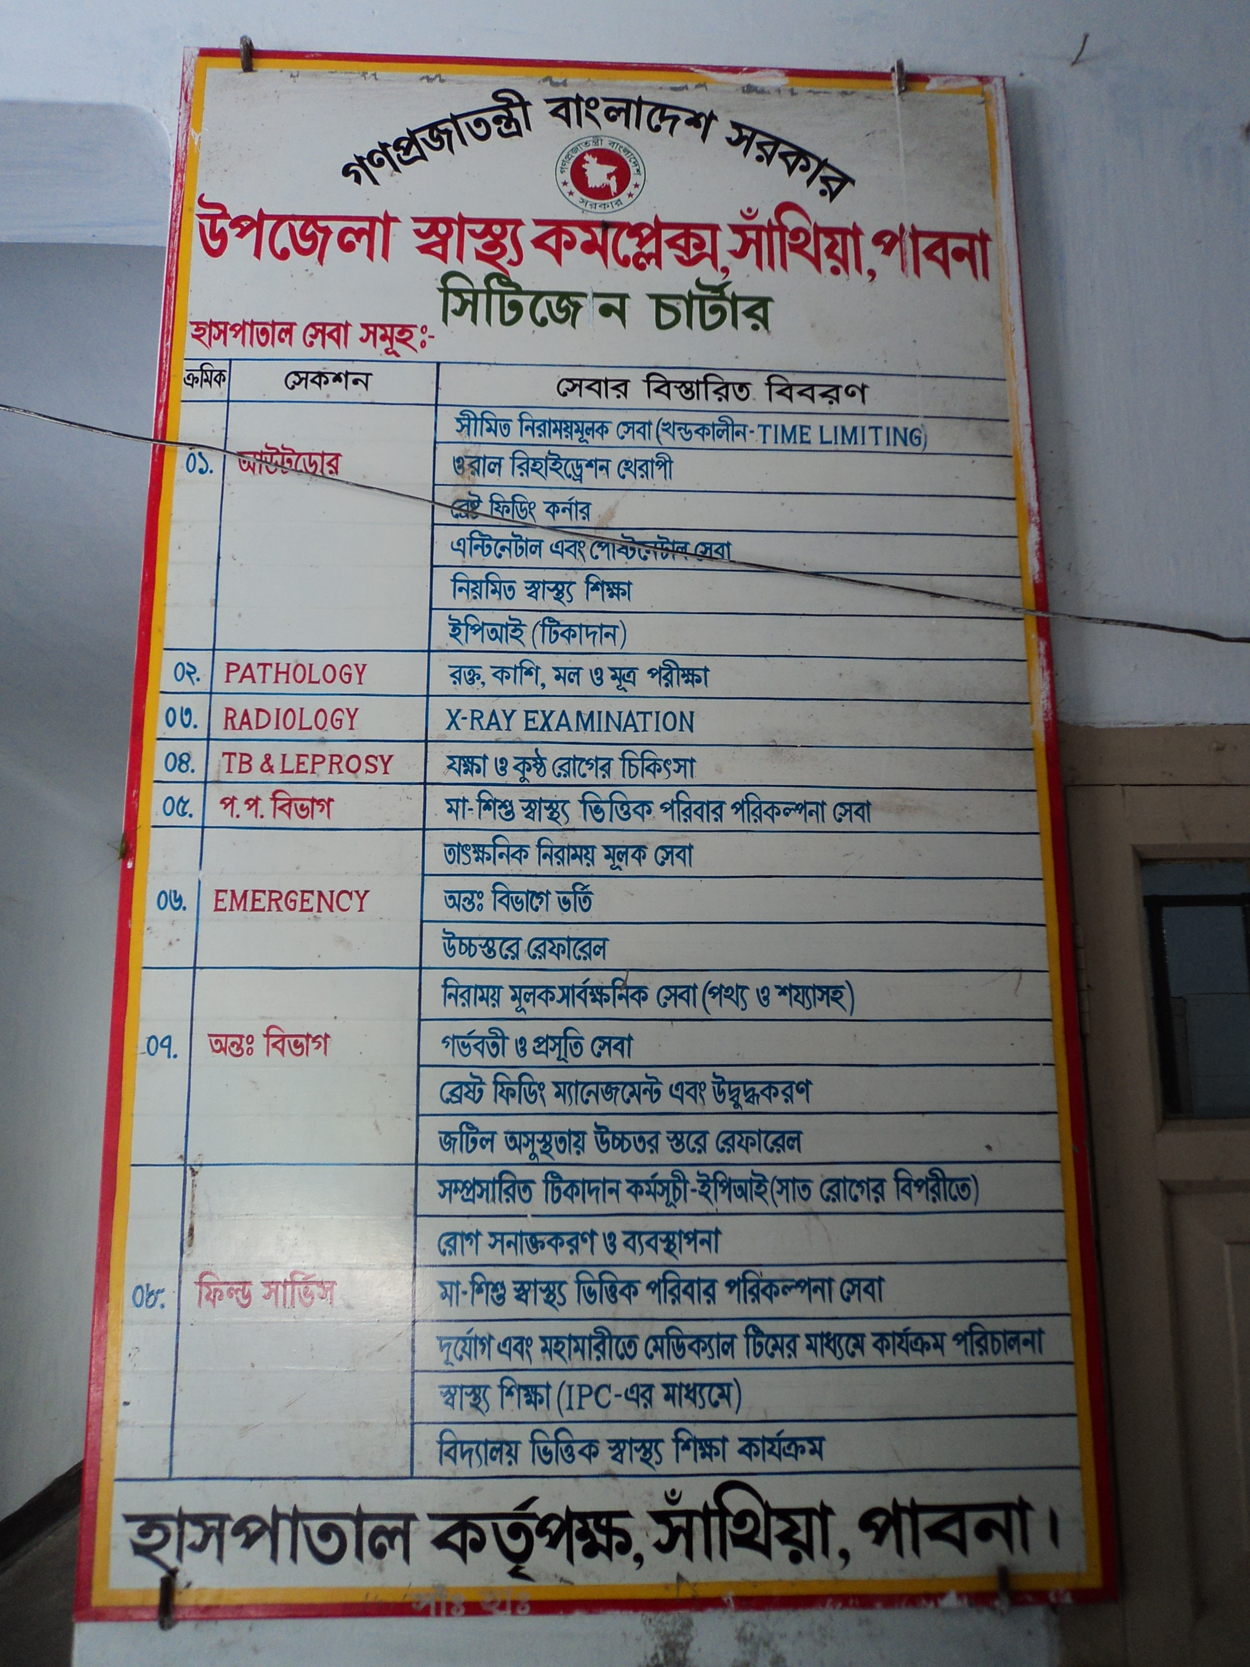 গণপ্রজাতন্ত্রী বাংলাদেশ সরকার
গণপ্রজাতন্ত্রী বাংলাদেশ
সরকার
উপজেলা স্বাস্থ্য কমপ্লেক্স, সাঁথিয়া, পাবনা
সিটিজেন চার্টার
হাসপাতাল সেবা সমূহঃ-
ক্রমিক সেকশন সেবার বিস্তারিত বিবরণ
সীমিত নিরাময়মূলক সেবা (খন্ডকালীন- TIME LIMITING)
০১. আউটডোর ওরাল রিহাইড্রেশন থেরাপী
ব্রেষ্ট ফিডিং কর্নার
এন্টিনেটাল এবং পোষ্টনেটাল সেবা
নিয়মিত স্বাস্থ্য শিক্ষা
ইপিআই (টিকাদান)
০২. PATHOLOGY রক্ত, কাশি, মল ও মূত্র পরীক্ষা
০৩. RADIOLOGY X-RAY EXAMINATION
০৪. TB & LEPROSY যক্ষা ও কুষ্ঠ রোগের চিকিৎসা
০৫. প. প. বিভাগ মা-শিশু স্বাস্থ্য ভিত্তিক পরিবার পরিকল্পনা সেবা
তাৎক্ষনিক নিরাময় মূলক সেবা
০৬. EMERGENCY অন্তঃ বিভাগে ভর্তি
উচ্চস্তরে রেফারেল
নিরাময় মূলক সার্বক্ষনিক সেবা (পথ্য ও শয্যাসহ)
০৭. অন্তঃ বিভাগ গর্ভবতী ও প্রসূতি সেবা
ব্রেষ্ট ফিডিং ম্যানেজমেন্ট এবং উদ্বুদ্ধকরণ
জটিল অসুস্থতায় উচ্চতর স্তরে রেফারেল
সম্প্রসারিত টিকাদান কর্মসূচী-ইপিআই (সাত রোগের বিপরীতে)
রোগ সনাক্তকরণ ও ব্যবস্থাপনা
০৮. ফিল্ড সার্ভিস মা-শিশু স্বাস্থ্য ভিত্তিক পরিবার পরিকল্পনা সেবা
দূর্যোগ এবং মহামারীতে মেডিক্যাল টিমের মাধ্যমে কার্যক্রম পরিচালনা
স্বাস্থ্য শিক্ষা (IPC-এর মাধ্যমে)
বিদ্যালয় ভিত্তিক স্বাস্থ্য শিক্ষা কার্যক্রম
হাসপাতাল কর্তৃপক্ষ, সাঁথিয়া, পাবনা।